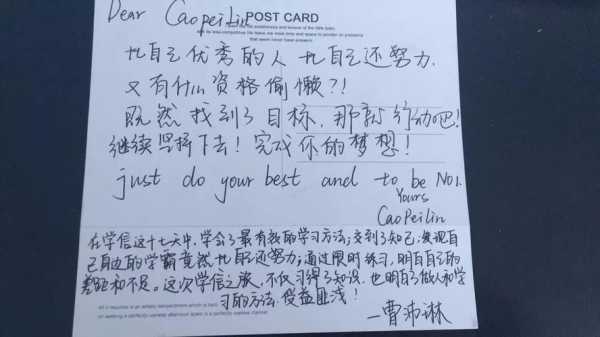 Dear CaoPeiLin
POST CARD
that seem never have present.
比自己优秀的人 比自己还努力.
又有什么资格偷懒?!
既然找到了目标, 那就行动吧!
继续坚持下去! 完成你的梦想!
just do your best and to be NO1.
Yours
CaoPeiLin
在学信这十七天中,学会了最有效的学习方法;交到了知己;发现自
己身边的学霸竟然比自己还努力;通过限时练习,明白自己的
差距和不足。这次学信之旅,不仅习得了知识,也明白了做人和学
习的方法,受益匪浅!
—曹沛琳